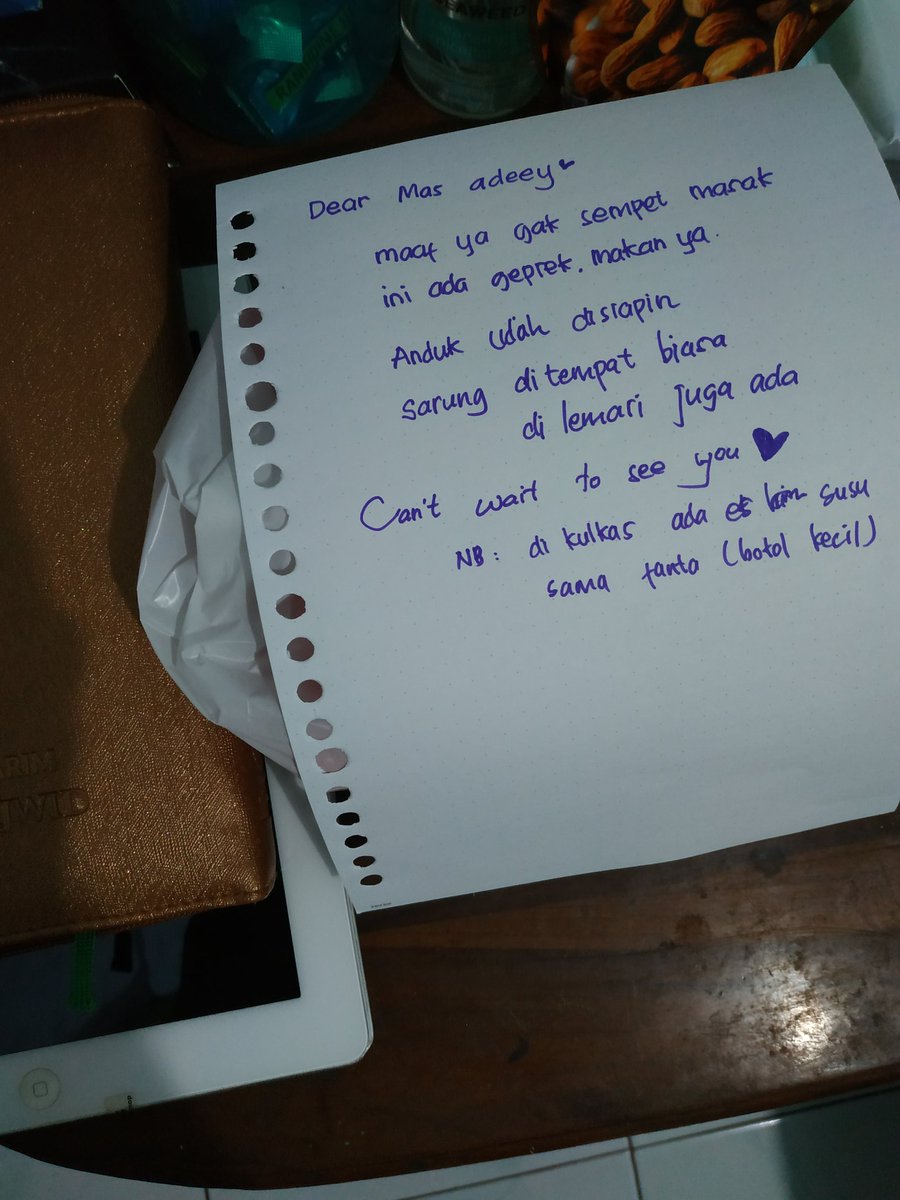 SEAWEED
Dear Mas adeey
maaf ya gak sempet masak
ini ada geprek. makan ya.
Anduk udah disiapin
sarung ditempat biasa
di lemari juga ada
Can't wait to see you
NB: di kulkas ada es susu
sama fanta (botol kecil)
ARIM
JWID